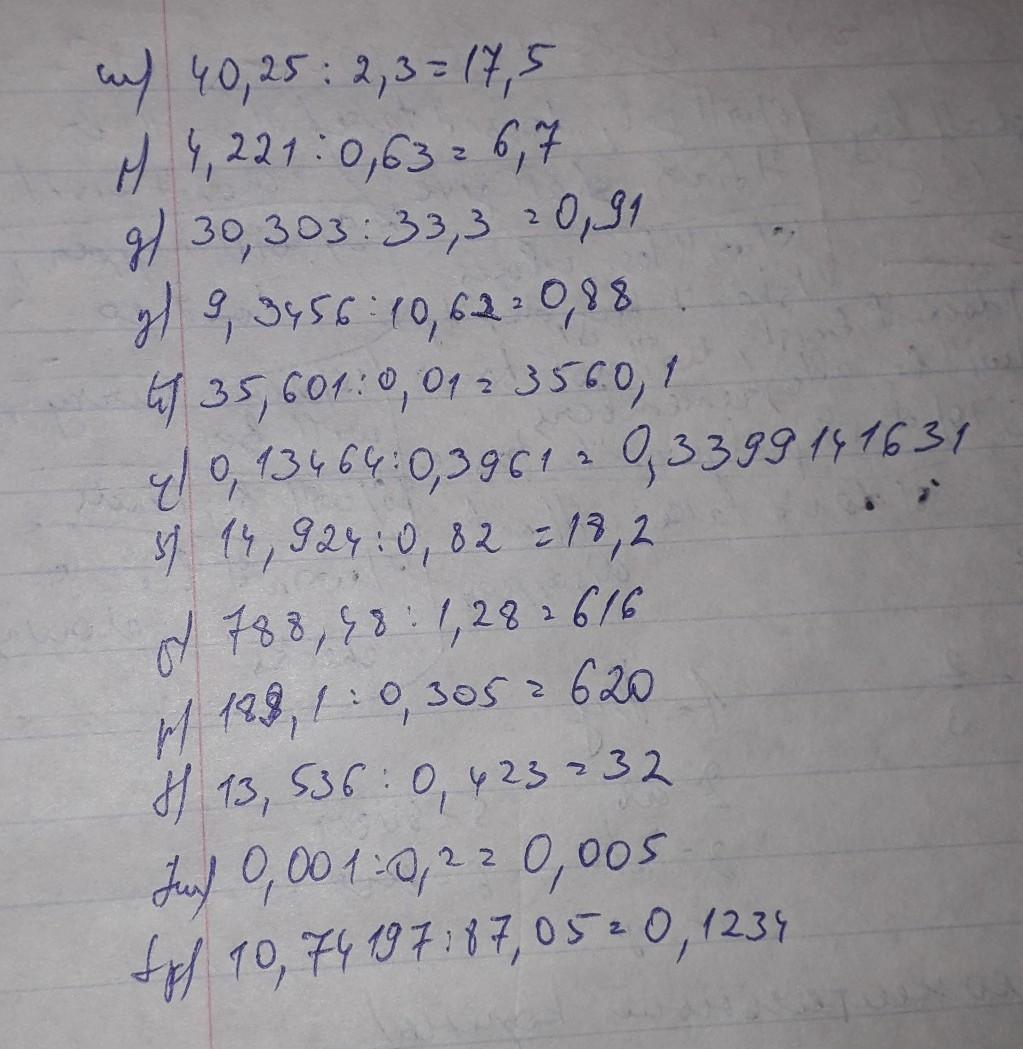 ш) 40,25 : 2,3 = 17,5
г) 4,221 : 0,63 = 6,7
д) 30,303 : 33,3 = 0,91
д) 9,3456 : 10,62 = 0,88
к) 35,601 : 0,01 = 3560,1
ч) 0,13464 : 0,3961 = 0,3399141631
з) 14,924 : 0,82 = 18,2
б) 788,48 : 1,28 = 616
г) 189,1 : 0,305 = 620
в) 13,536 : 0,423 = 32
0,001 : 0,2 = 0,005
10,74197 : 87,05 = 0,1234